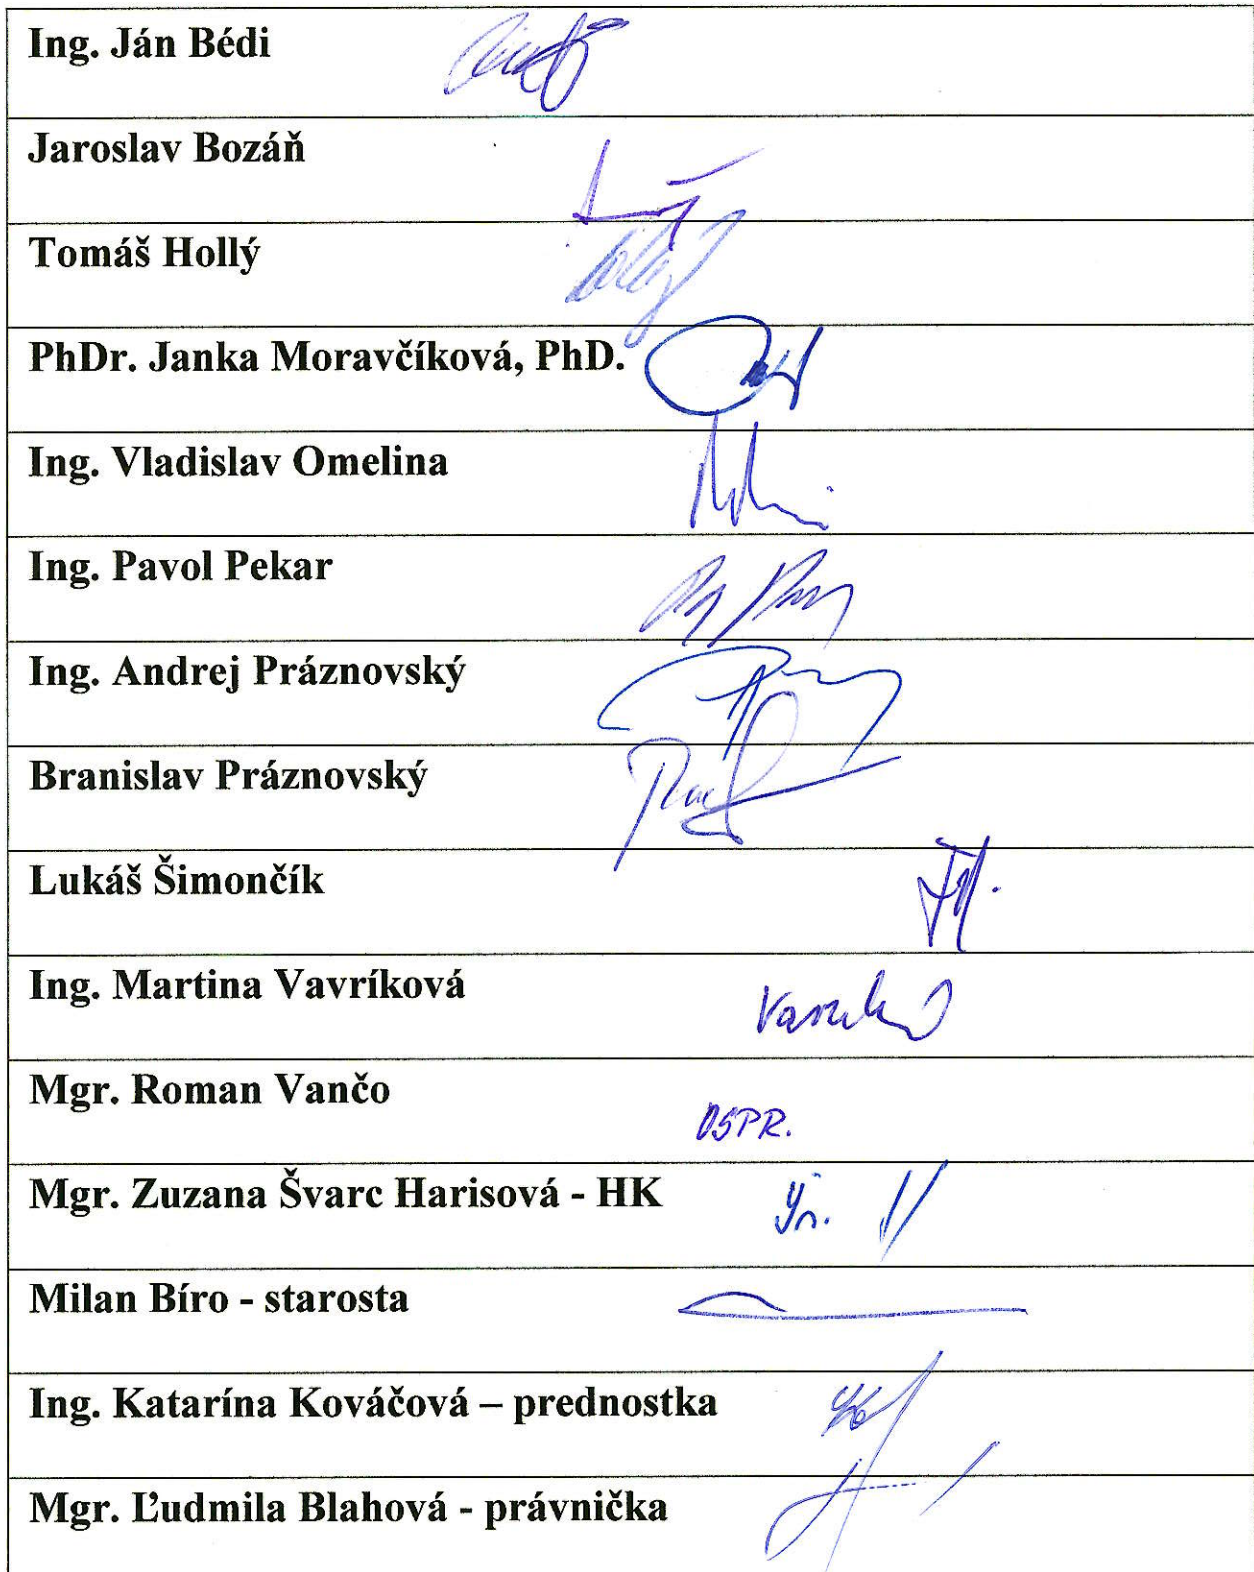 Ing. Ján Bédi
Jaroslav Bozáň
Tomáš Hollý
PhDr. Janka Moravčíková, PhD.
Ing. Vladislav Omelina
Ing. Pavol Pekar
Ing. Andrej Práznovský
Branislav Práznovský
Lukáš Šimončík
Ing. Martina Vavríková
Mgr. Roman Vančo
OSPR.
Mgr. Zuzana Švarc Harisová - HK
Milan Bíro - starosta
Ing. Katarína Kováčová – prednostka
Mgr. Ľudmila Blahová - právnička